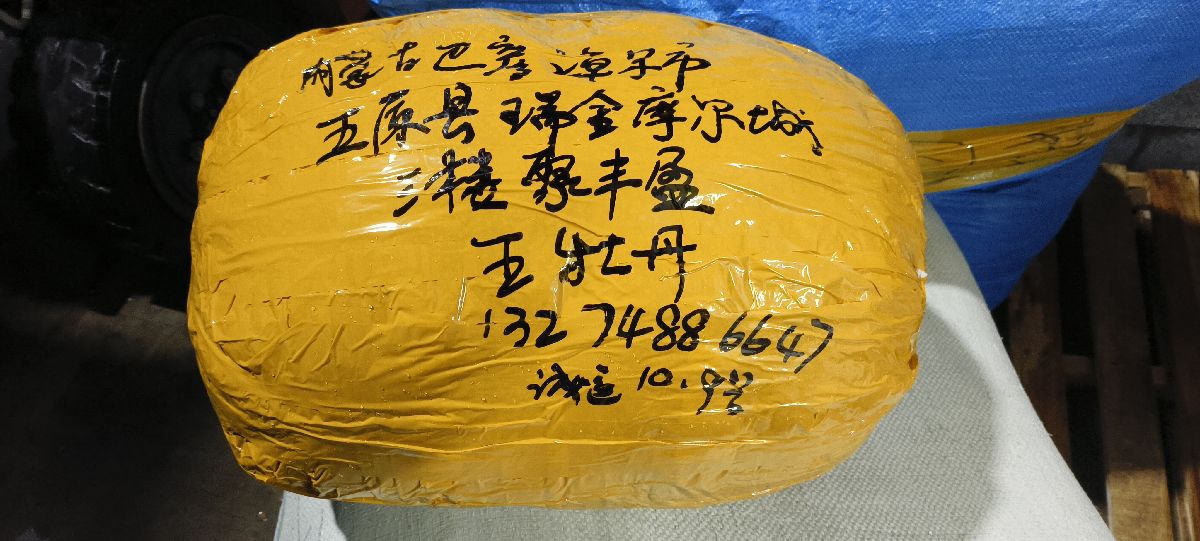 内蒙古巴彦淖尔市
五原县瑞金摩尔城
三楼聚丰盈
王牡丹
13274886647
诚运10.9号